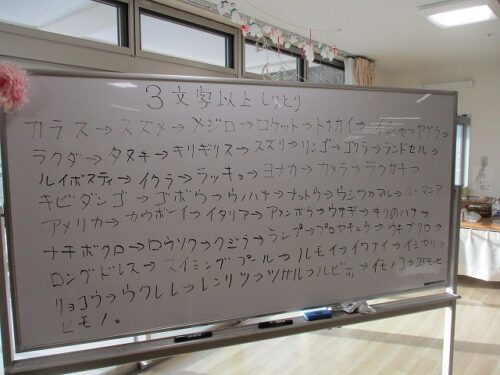 3文字以上しりとり
カラス→スズメ→メジロ→ロケット→トナカイ→イシャ→ヤグラ→
ラクダ→タヌキ→キリギリス→スズリ→リンゴ→ゴリラ→ランドセル→
ルイボスティ→イクラ→ラッキョ→ヨナカ→カメラ→ラクガキ→
キビダンゴ→ゴボウ→ウノハナ→ナットウ→ウシワカマル→ルーマニア
アメリカ→カウボーイ→イタリア→アメンボウ→ウサギ→キリのハナ→
ナキボクロ→ロウソク→クジラ→ランプ→プロヤキュウ→ウキブクロ→
ロングドレス→スイミングプール→ルモイ→イクティ→イシカリ→
リョコウ→ウクレレ→レンリツ→ツガル→ルビー→イモノコ→コトモセ
ヒモノ。